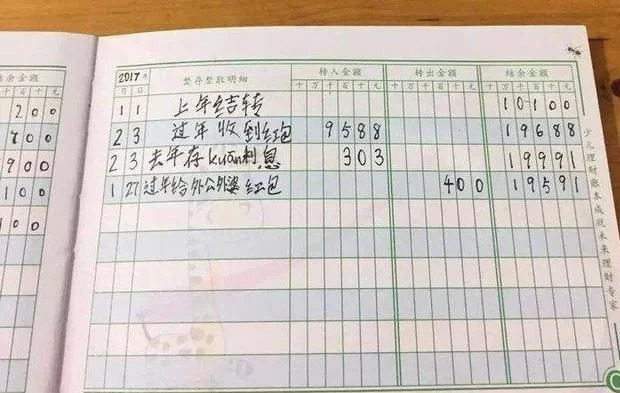 结余金额
百十元
200
700
900
100
100
2017年 整存整取明细 转入金额 转出金额 结余金额
月 日 十万千百十元 十万千百十元 十万千百十元
1 1 上年结转 10100
2 3 过年收到红包 9588 19688
2 3 去年存kuǎn利息 303 19991
1 27 过年给外公外婆红包 400 19591
少儿理财账本成就未来理财专家